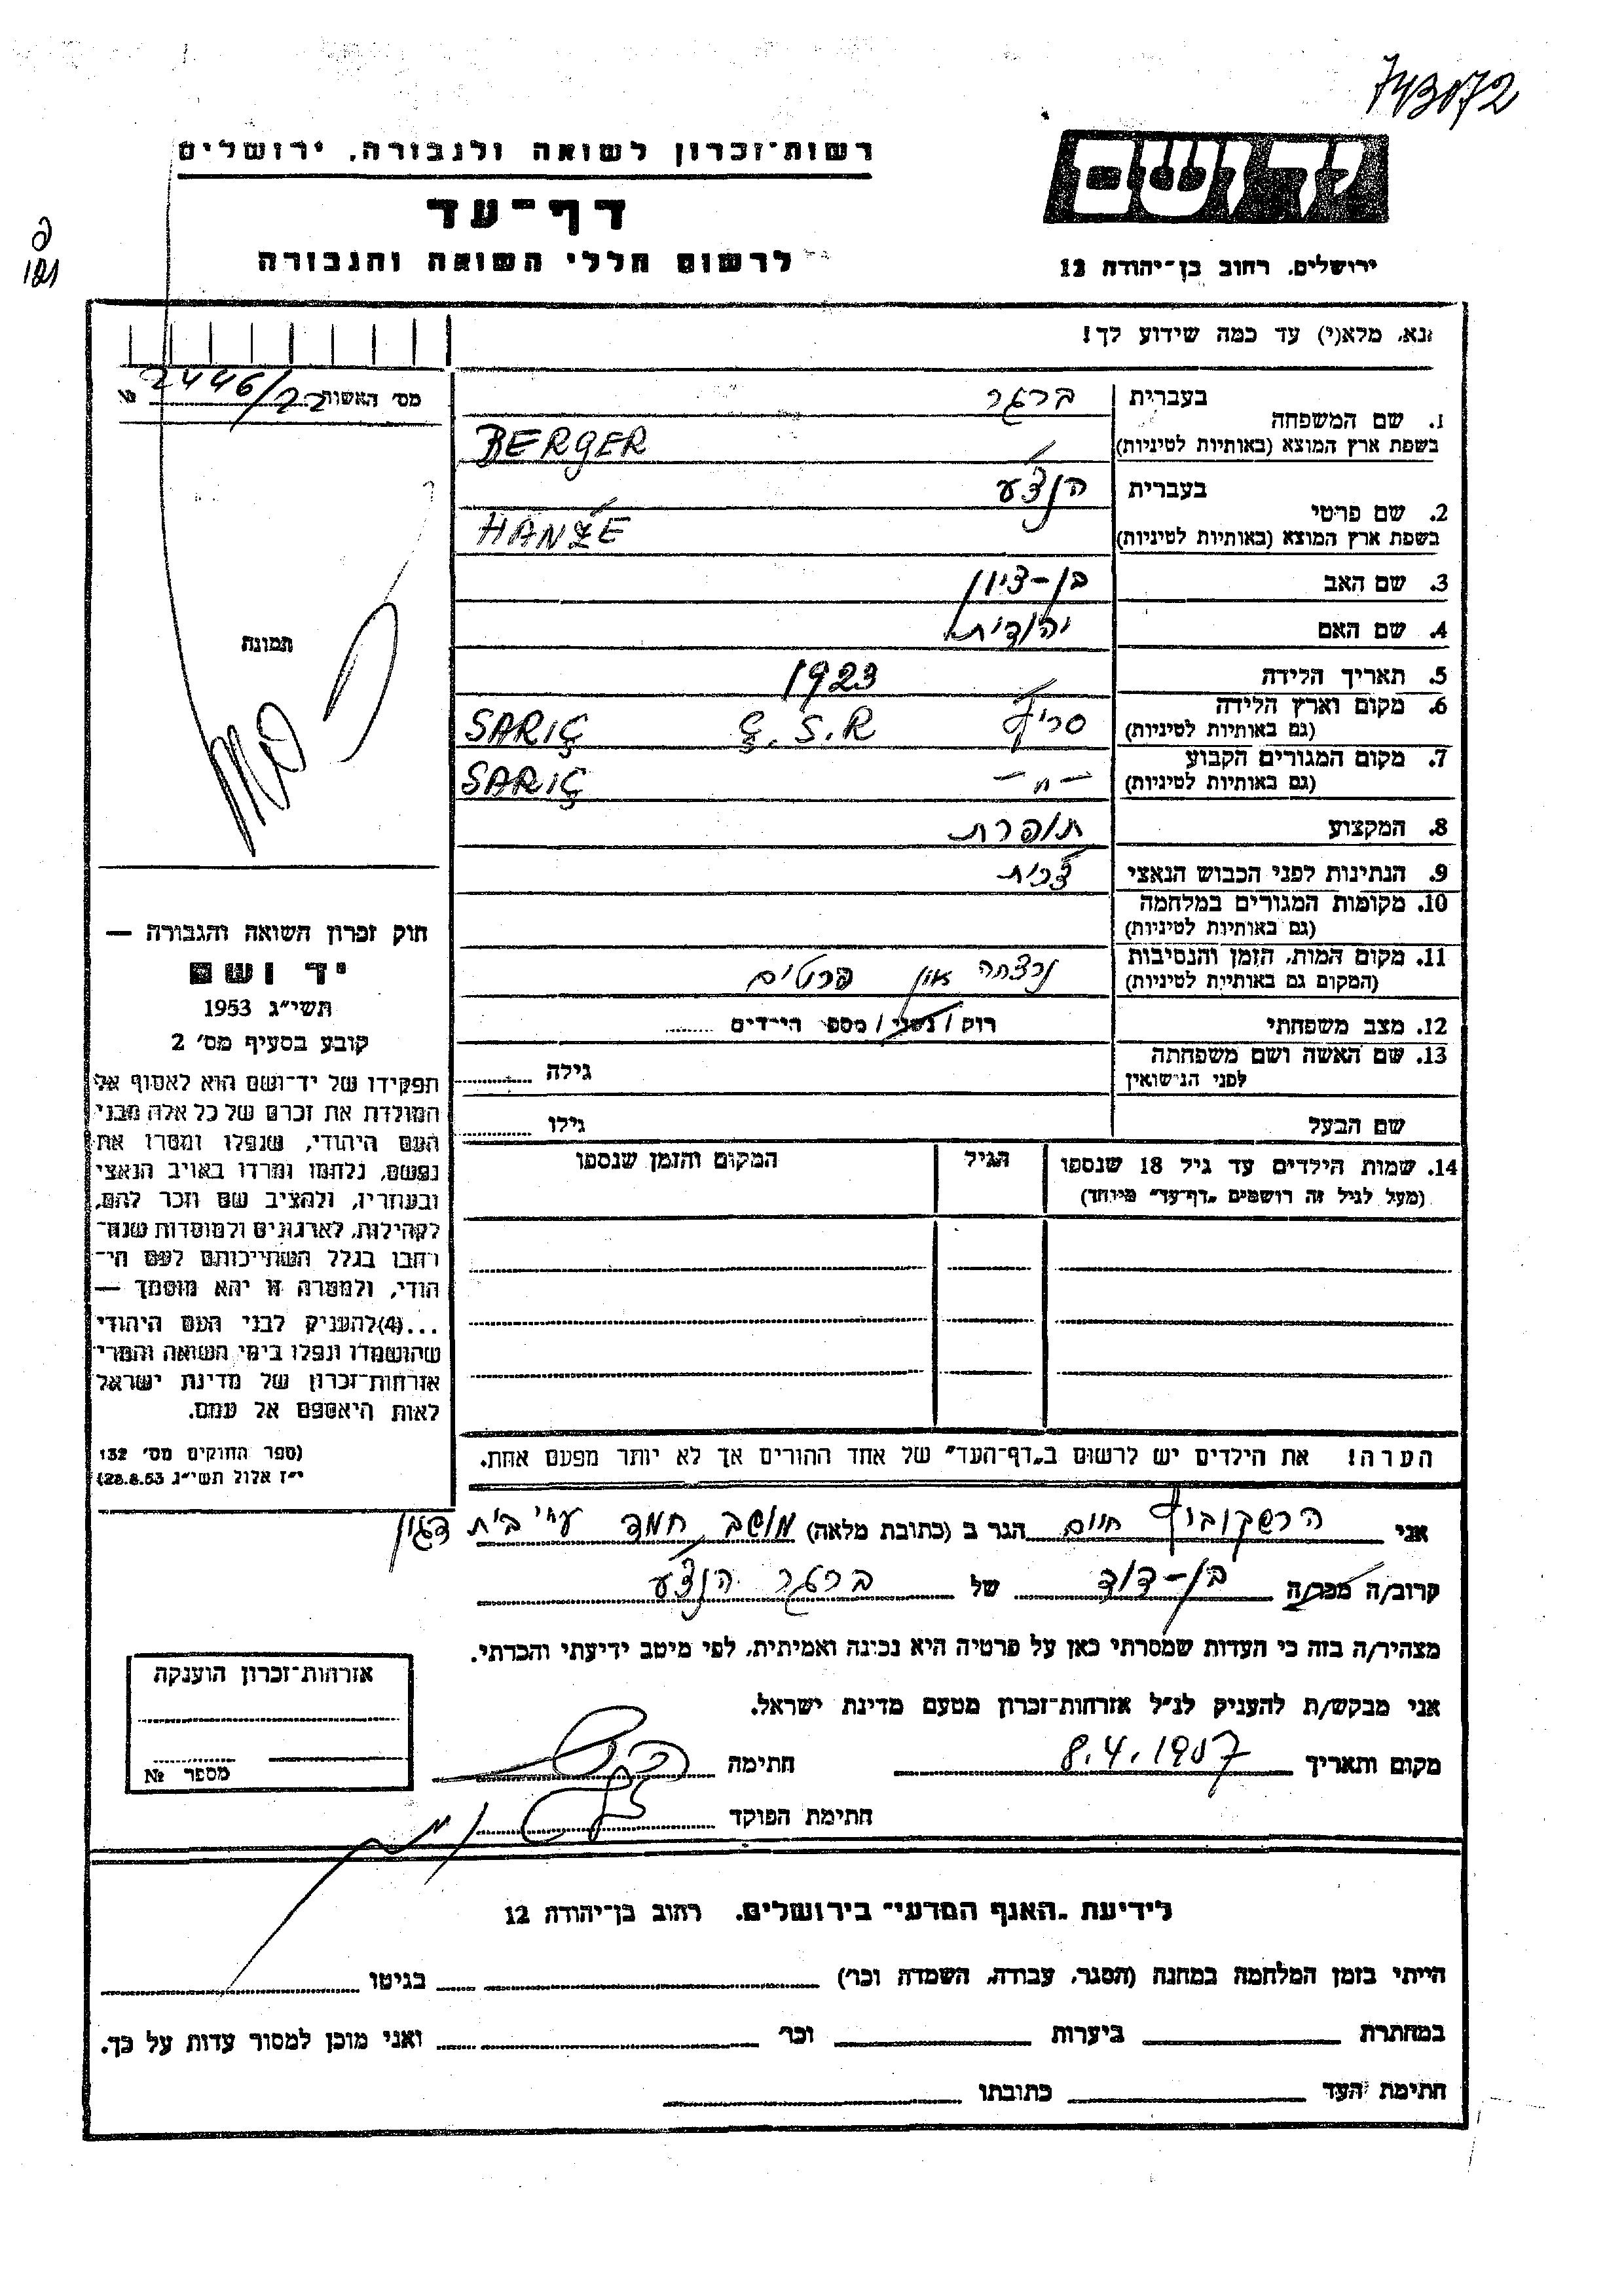 743072
רשות־זכרון לשואה ולגבורה, ירושלים
דף־עד
לרשום חללי השואה והגבורה
יד ושם
ירושלים, רחוב בן־יהודה 12
נא, מלא(י) עד כמה שידוע לך!
מס׳ האשות 2446/22 №
1. שם המשפחה
בעברית ברגר
בשפת ארץ המוצא (באותיות לטיניות) BERGER
2. שם פרטי
בעברית הנצ׳ע
בשפת ארץ המוצא (באותיות לטיניות) HANŹE
3. שם האב בן-ציון
4. שם האם יהודית
5. תאריך הלידה 1923
6. מקום וארץ הלידה סריץ׳ Ç.S.R SARIÇ
(גם באותיות לטיניות)
7. מקום המגורים הקבוע — " — SARIÇ
(גם באותיות לטיניות)
8. המקצוע תופרת
9. הנתינות לפני הכבוש הנאצי צ׳כית
10. מקומות המגורים במלחמה
(גם באותיות לטיניות)
11. מקום המות, הזמן והנסיבות נרצחה אין פרטים
(המקום גם באותיות לטיניות)
12. מצב משפחתי רוק / נשוי / מספ׳ הילדים ........
13. שם האשה ושם משפחתה גילה
לפני הנישואין
שם הבעל גילו
14. שמות הילדים עד גיל 18 שנספו הגיל המקום והזמן שנספו
(מעל לגיל זה רושמים „דף־עד״ מיוחד)
הערה! את הילדים יש לרשום ב„דף־העד״ של אחד ההורים אך לא יותר מפעם אחת.
תמונה
חוק זכרון השואה והגבורה —
יד ושם
תשי״ג 1953
קובע בסעיף מס׳ 2
תפקידו של יד־ושם הוא לאסוף אל
המולדת את זכרם של כל אלה מבני
העם היהודי, שנפלו ומסרו את
נפשם, נלחמו ומרדו באויב הנאצי
ובעוזריו, ולהציב שם וזכר להם,
לקהילות, לארגונים ולמוסדות שנח־
רבו בגלל השתייכותם לעם הי־
הודי, ולמטרה זו יהא מוסמך —
...(4)להעניק לבני העם היהודי
שהושמדו ונפלו בימי השואה והמרי
אזרחות־זכרון של מדינת ישראל
לאות היאספם אל עמם.
(ספר החוקים מס׳ 132
י״ז אלול תשי״ג 28.8.53)
אני הרשקוביץ חיים הגר ב (כתובת מלאה) מושב חמד ע״י בית דגון
קרוב/ה מכר/ה בן-דוד של ברגר הנצ׳ע
מצהיר/ה בזה כי העדות שמסרתי כאן על פרטיה היא נכונה ואמיתית, לפי מיטב ידיעתי והכרתי.
אני מבקש/ת להעניק לנ״ל אזרחות־זכרון מטעם מדינת ישראל.
מקום ותאריך 8.4.1957 חתימה
חתימת הפוקד
אזרחות־זכרון הוענקה
מספר №
לידיעת „האגף המדעי״ בירושלים, רחוב בן־יהודה 12
הייתי בזמן המלחמה במחנה (הסגר, עבודה, השמדה וכו׳) בגיטו
במחתרת ביערות וכו׳ ואני מוכן למסור עדות על כך.
חתימת העד כתובתו